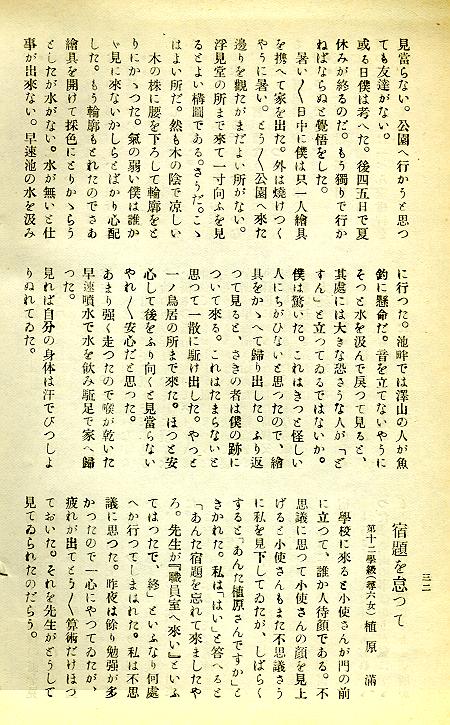 見當らない。公園へ行かうと思つ
ても友達がない。
或る日僕は考へた。後四五日で夏
休みが終るのだ。もう獨りで行か
ねばならぬと覺悟をした。
暑い〱日中に僕は只一人繪具
を携へて家を出た。外は燒けつく
やうに暑い。とう〱公園へ來た
邊りを觀たがまだよい所がない。
浮見堂の所まで來て一寸向ふを見
るとよい構圖である。さうだ。こゝ
はよい所だ。然も木の陰で凉しい
木の株に腰を下ろして輪廓をと
りにかゝつた。氣の弱い僕は誰か
ゞ見に來ないかしらとばかり心配
した。もう輪廓もとれたのでさあ
繪具を開けて採色にとりかゝらう
としたが水がない。水が無いと仕
事が出來ない。早速池の水を汲み
に行つた。池畔では澤山の人が魚
釣に懸命だ。音を立てないやうに
そつと水を汲んで戻つて見ると、
其處には大きな恐さうな人が「ど
すん」と立つてゐるではないか。
僕は驚いた。これはきつと怪しい
人にちがひないと思つたので、繪
具をかゝへて歸り出した。ふり返
つて見ると、さきの者は僕の跡に
ついて來る。これはたまらないと
思つて一散に駈け出した。やつと
一ノ鳥居の所まで來た。ほつと安
心して後をふり向くと見當らない
やれ〱安心だと思つた。
あまり强く走つたので喉が乾いた
早速噴水で水を飲み駈足で家へ歸
つた。
見れば自分の身体は汗でびつしよ
りぬれてゐた。
三二
宿題を怠つて
第十二學級(尋六女) 植原 滿
學校に來ると小使さんが門の前
に立つて、誰か人待顏である。不
思議に思つて小使さんの顏を見上
げると小使さんもまた不思議さう
に私を見下してゐたが、しばらく
すると「あんた植原さんですか」と
きかれた。私は「はい」と答へると
「あんた宿題を忘れて來ましたや
ろ。先生が『職員室へ來い』といふ
てはつたで、終」といふなり何處
へか行つてしまはれた。私は不思
議に思つた。昨夜は餘り勉强が多
かつたので一心にやつてゐたが、
疲れが出てとう〱算術だけほつ
ておいた。それを先生がどうして
見てゐられたのだらう。